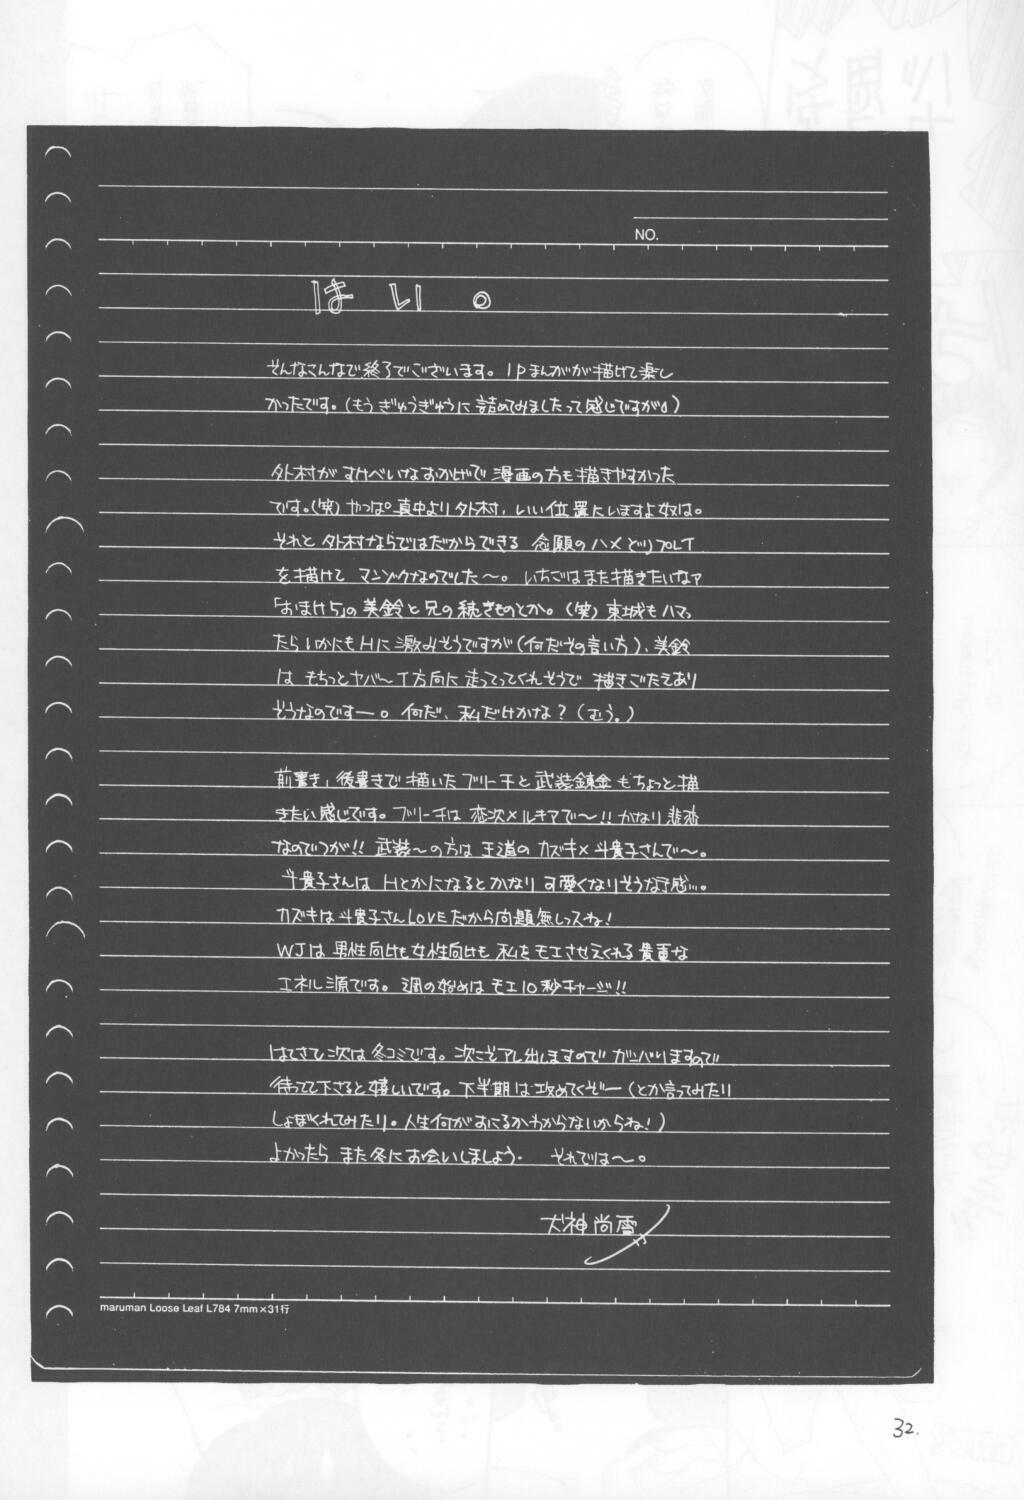 NO.
はい。
そんなこんなで終了でございます。1Pまんがが描けて楽し
かったです。(もうぎゅうぎゅうに詰めてみましたって感じですが♂)
外村がすけべいなおかげで漫画の方も描きやすかった
です。(笑)やっぱ真中より外村、いい位置にいますよ奴は。
それと外村ならではだからできる念願のハメどりプレイ
を描けてマンゾクなのでした〜。いちごはまた描きたいなァ
「おまけ5」の美鈴と兄の続きものとか。(笑)東城もハマっ
たらいかにもHに激みそうですが(何だその言い方)、美鈴
はもちっとヤバ〜イ方向に走ってってくれそうで描きごたえあり
そうなのですー。何だ、私だけかな?(むう。)
前書き、後書きで描いたブリーチと武装錬金もちょっと描
きたい感じです。ブリーチは恋次×ルキアで〜!!かなり悲恋
なのでつが!!武装〜の方は王道のカズキ×斗貴子さんで〜。
斗貴子さんはHとかになるとかなり可愛くなりそうな予感…。
カズキは斗貴子さんLOVEだから問題無しっスね!
WJは男性向けも女性向けも私をモエさせてくれる貴重な
エネル源です。週の始めはモエ10秒チャージ!!
はてさて次は冬コミです。次こそアレ出しますのでガンバりますので
待ってて下さると嬉しいです。下半期は攻めてくぞー(とか言ってみたり
しょぼくれてみたり。人生何がおこるかわからないからね!)
よかったらまた冬にお会いしましょう. それでは〜。
犬神尚雪
maruman Loose Leaf L784 7mm×31行
32.